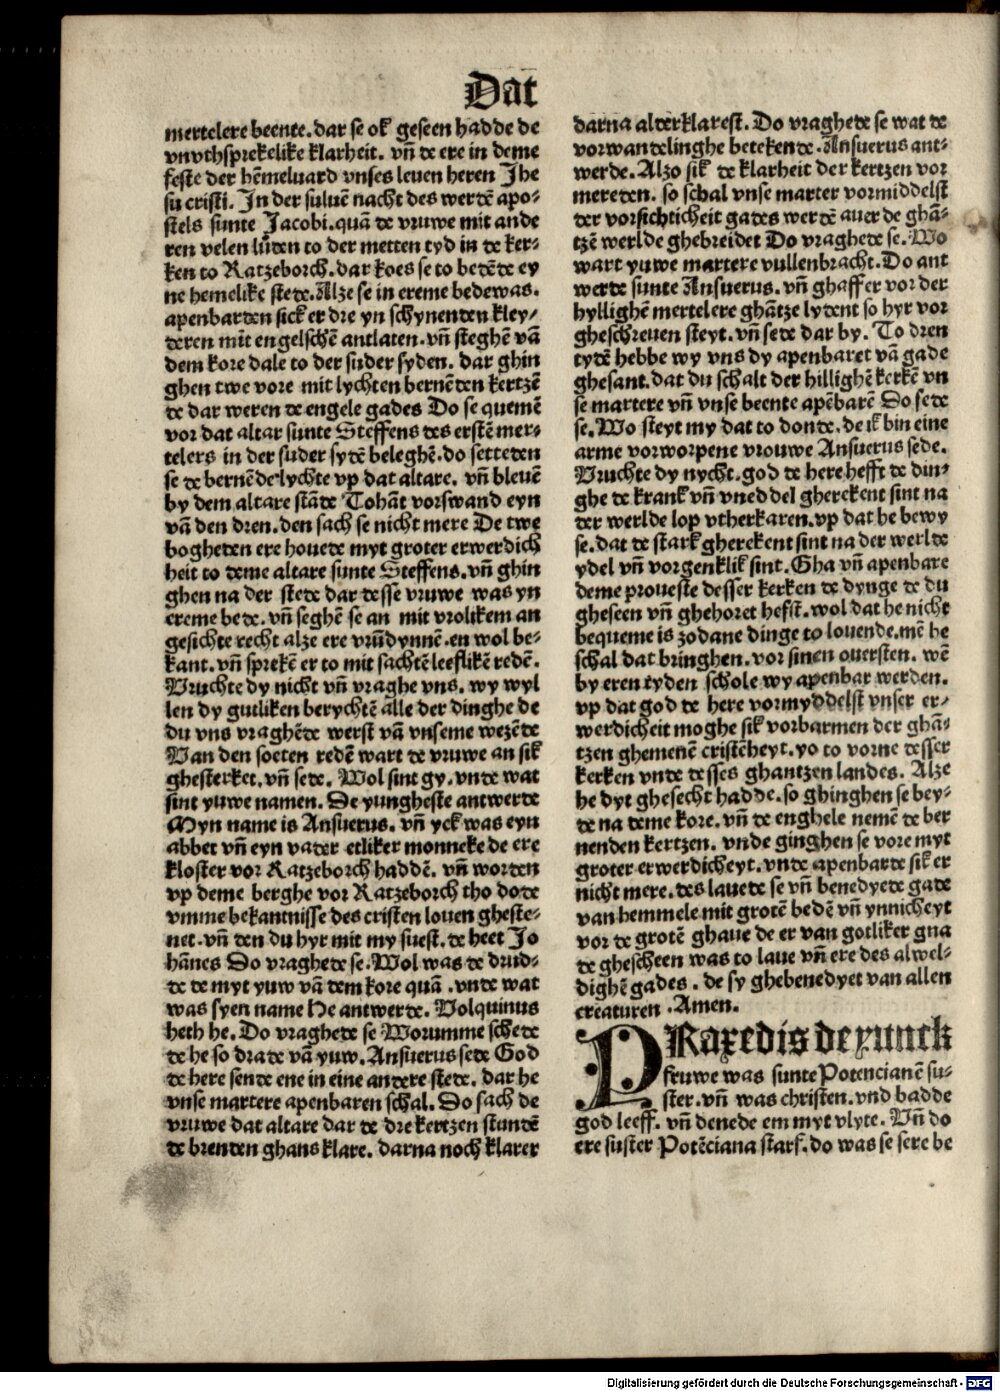 Dat
mertelere beente. dar se ok geseen hadde de
vnvthsprekelike klarheit. vñ de ere in deme
feste der hẽmeluard vnses leuen heren Jhe
su cristi. In der suluẽ nacht des werdẽ apo-
stels sunte Jacobi. quã de vruwe mit ande
ren velen lũden to der metten tyd in de ker-
ken to Ratzeborch. dar koes se to bedẽde ey
ne hemelike stede. Alze se in ereme bede was.
apenbarden sick er dre yn schynenden kley-
deren mit engelschẽ antlaten. vñ steghẽ vã
dem kore dale to der suder syden. dar ghin
ghen twe vore mit lychten bernẽden kertzẽ
de dar weren de engele gades Do se quemẽ
vor dat altar sunte Steffens des erstẽ mer-
telers in der suder sydẽ beleghẽ. do setteden
se de bernẽde lychte vp dat altare. vñ bleuẽ
by dem altare stãde Tohãt vorswand eyn
vã den dren. den sach se nicht mere De twe
bogheden ere houede myt groter erwerdich
heit to deme altare sunte Steffens. vñ ghin
ghen na der stede dar desse vruwe was yn
ereme bede. vñ seghẽ se an mit vrolikem an
gesichte recht alze ere vrũdynnẽ. en wol be-
kant. vñ sprekẽ er to mit sachtẽ leeflikẽ redẽ.
Vruchte dy nicht vñ vraghe vns. wy wyl
len dy gutliken berychtẽ alle der dinghe de
du vns vraghẽde werst vã vnseme wezẽde
Van den soeten redẽ wart de vruwe an sik
ghesterket. vñ sede. Wol sint gy. vnde wat
sint yuwe namen. De yungheste antwerde
Myn name is Ansuerus. vñ yck was eyn
abbet vñ eyn vader etliker monneke de ere
kloster vor Ratzeborch haddẽ. vñ worden
vp deme berghe vor Ratzeborch tho dode
vmme bekantnisse des cristen louen gheste-
net. vñ den du hyr mit my suest. de heet Jo
hãnes Do vraghede se. Wol was de drud-
de de myt yuw vã dem kore quã. vnde wat
was syen name He antwerde. Volquinus
heth he. Do vraghede se Worumme schede
de he so drade vã yuw. Ansuerus sede God
de here sende ene in eine andere stede. dar he
vnse martere apenbaren schal. Do sach de
vruwe dat altare dar de dre kertzen stundẽ
de brenden ghans klare. darna noch klarer
darna alderklarest. Do vraghede se wat de
vorwandelinghe betekende. Ansuerus ant-
werde. Alzo sik de klarheit der kertzen vor
mereden. so schal vnse marter vormiddelst
der vorsichticheit gades werdẽ auer de ghã-
tzẽ werlde ghebreidet Do vraghede se. Wo
wart yuwe martere vullenbracht. Do ant
werde sunte Ansuerus. vñ ghaff er vor der
hyllighẽ mertelere ghãtze lydent so hyr vor
gheschreuen steyt. vñ sede dar by. To dren
tydẽ hebbe wy vns dy apenbaret vã gade
ghesant. dat du schalt der hillighẽ kerkẽ vn
se martere vñ vnse beente apẽbarẽ Do sede
se. Wo steyt my dat to donde. de ik bin eine
arme vorworpene vrouwe Ansuerus sede.
Vruchte dy nycht. god de here hefft de din-
ghe de krank vñ vneddel gherekent sint na
der werlde lop vtherkaren. vp dat he bewy
se. dat de stark gherekent sint na der werlde
ydel vñ vorgenklik sint. Gha vñ apenbare
deme proueste desser kerken de dynge de du
gheseen vñ ghehoret hefst. wol dat he nicht
bequeme is zodane dinge to louende. mẽ he
schal dat bringhen. vor sinen ouersten. wẽ
by eren tyden schole wy apenbar werden.
vp dat god de here vormyddelst vnser er-
werdicheit moghe sik vorbarmen der ghã-
tzen ghemenẽ cristẽheyt. yo to vorne desser
kerken vnde desses ghantzen landes. Alze
he dyt ghesecht hadde. so ghinghen se bey-
de na deme kore. vñ de enghele nemẽ de ber
nenden kertzen. vnde ginghen se vore myt
groter erwerdicheyt. vnde apenbarde sik er
nicht mere. des lauede se vñ benedyede gade
van hemmele mit grotẽ bedẽ vñ ynnicheyt
vor de grotẽ ghaue de er van gotliker gna
de ghescheen was to laue vñ ere des alwel-
dighẽ gades. de sy ghebenedyet van allen
creaturen. Amen.
PRaxedis de yunck
fruwe was sunte Potencianẽ su-
ster. vñ was christen. vnd hadde
god leeff. vñ denede em myt vlyte. Vñ do
ere suster Potẽciana starf. do was se sere be
Digitalisierung gefördert durch die Deutsche Forschungsgemeinschaft - DFG